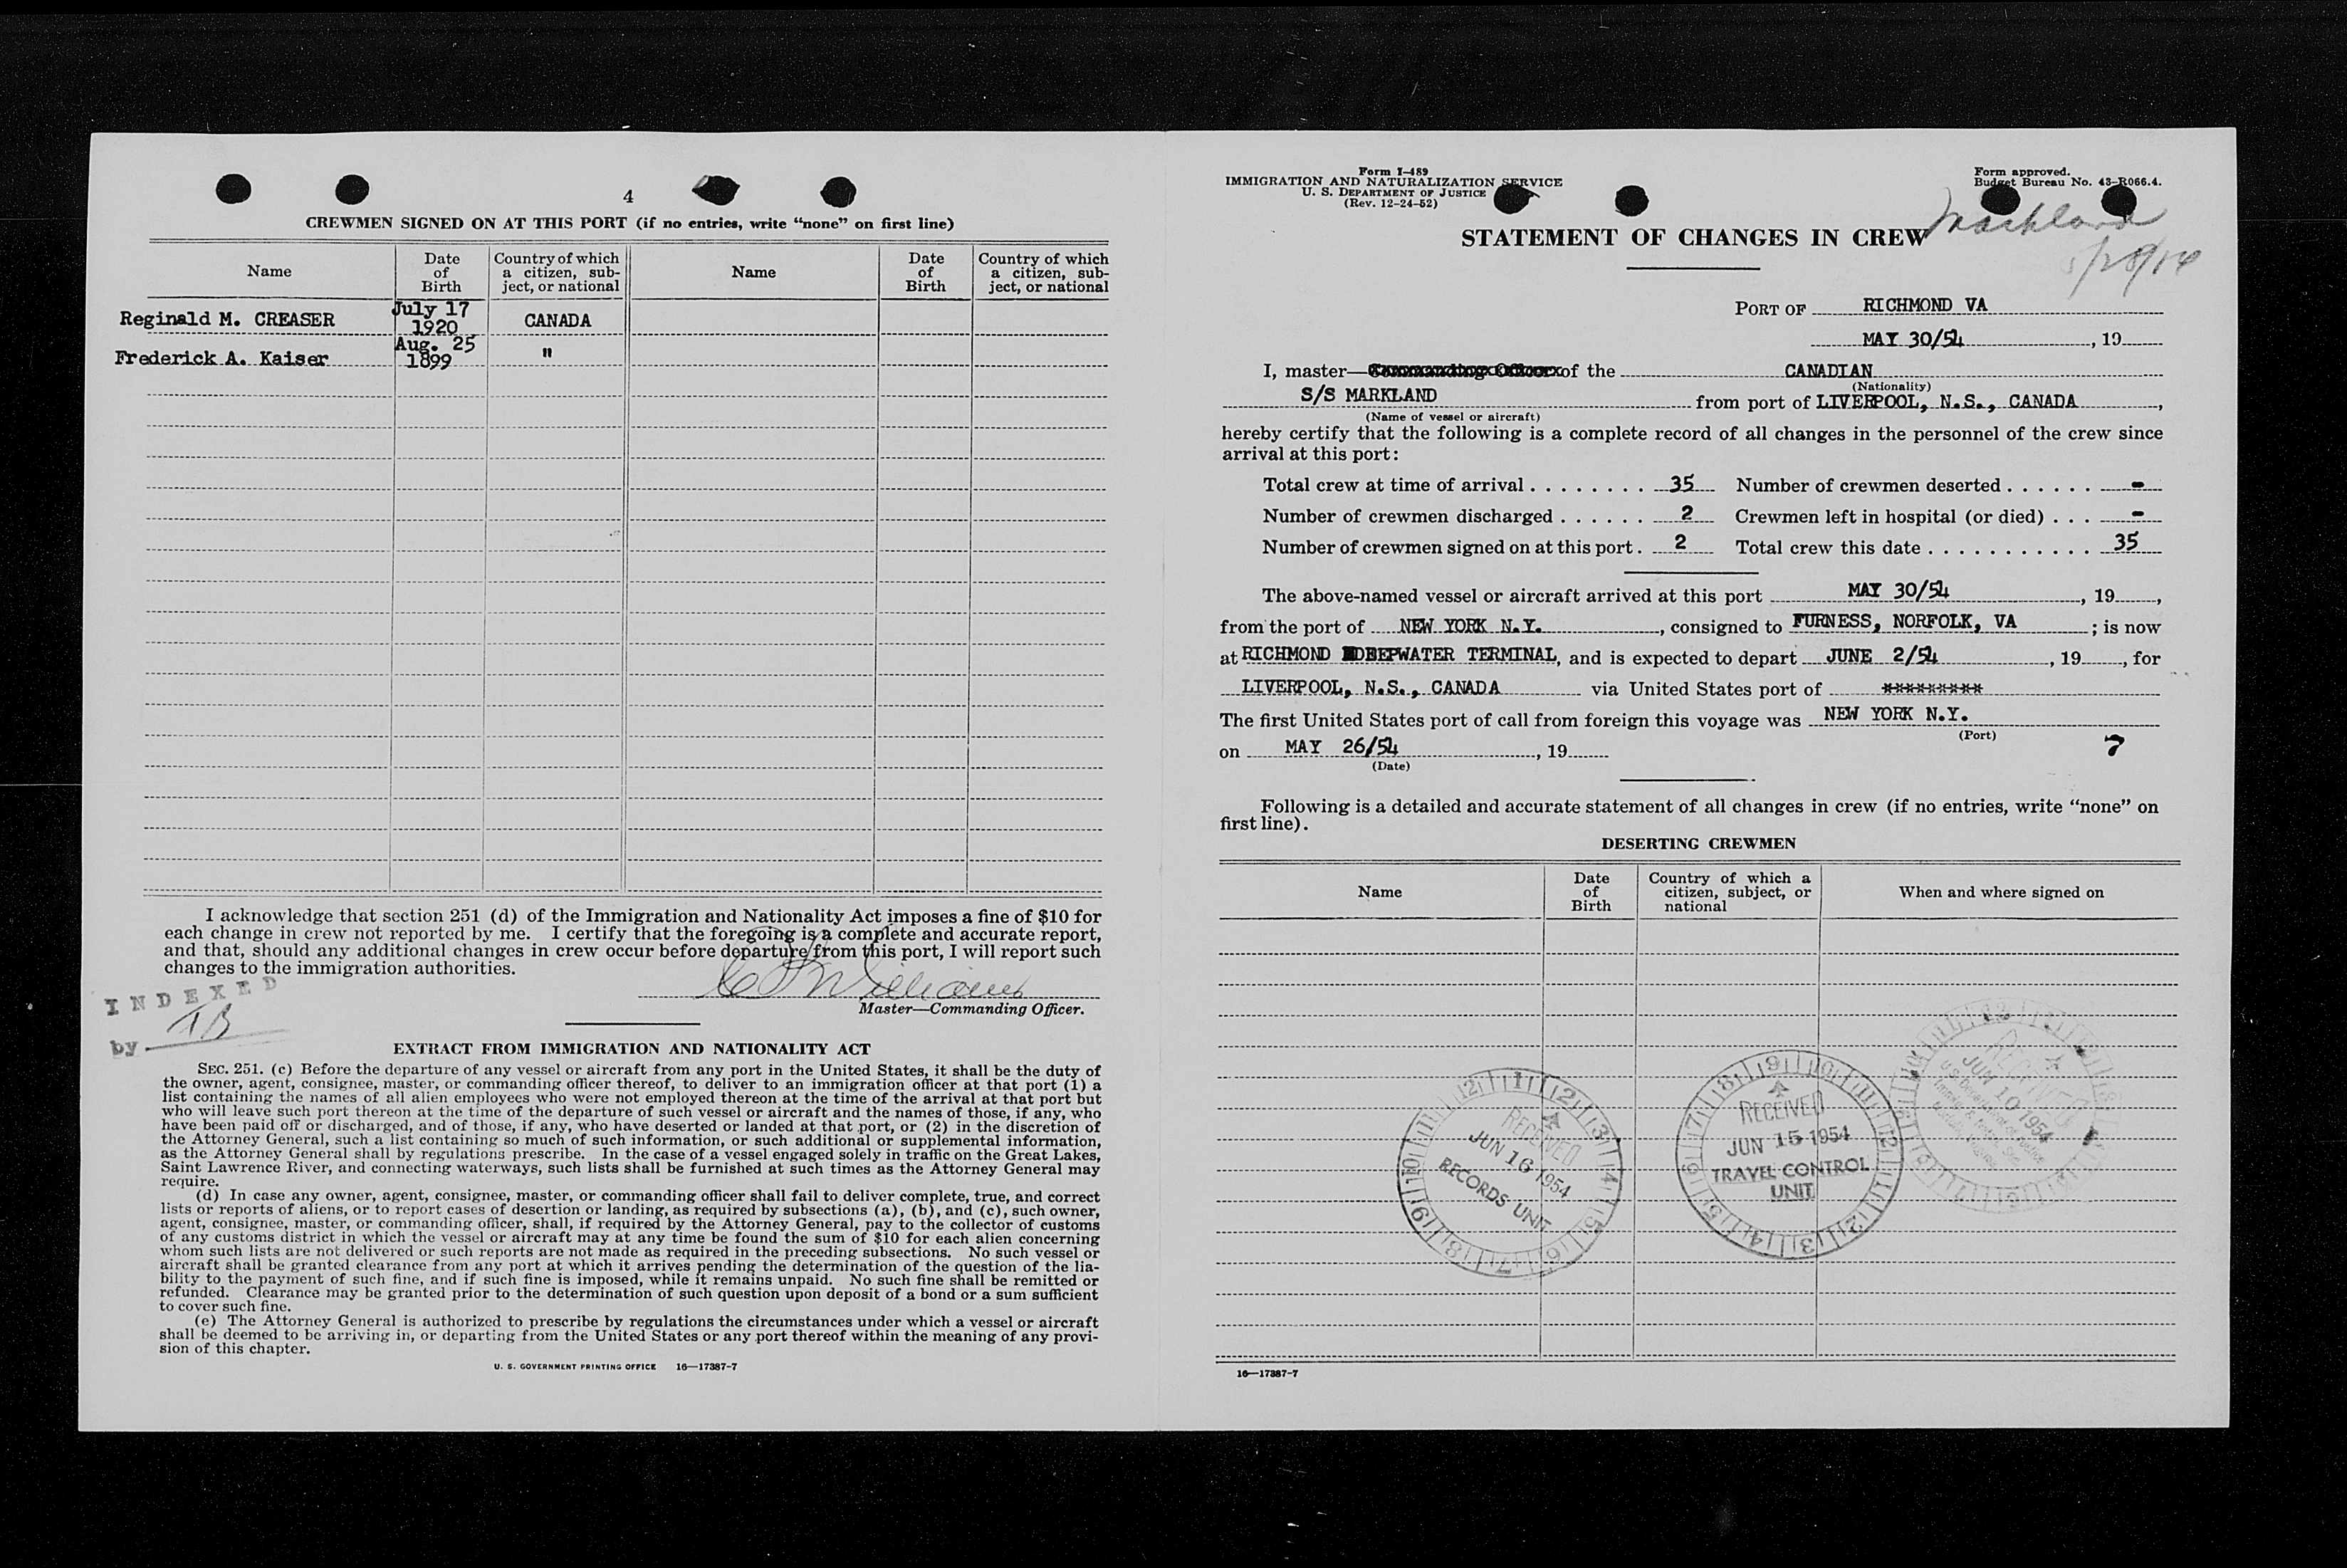 4
CREWMEN SIGNED ON AT THIS PORT (if no entries, write “none” on first line)
Name
Date of Birth
Country of which a citizen, sub-ject, or national
Name
Date of Birth
Country of which a citizen, sub-ject, or national
Reginald M. CREASER July 17 1920 CANADA
Frederick A. Kaiser Aug. 25 1899 "
I acknowledge that section 251 (d) of the Immigration and Nationality Act imposes a fine of $10 for
each change in crew not reported by me. I certify that the foregoing is a complete and accurate report,
and that, should any additional changes in crew occur before departure from this port, I will report such
changes to the immigration authorities.
INDEXED
by
Williams
Master—Commanding Officer.
EXTRACT FROM IMMIGRATION AND NATIONALITY ACT
SEC. 251. (c) Before the departure of any vessel or aircraft from any port in the United States, it shall be the duty of
the owner, agent, consignee, master, or commanding officer thereof, to deliver to an immigration officer at that port (1) a
list containing the names of all alien employees who were not employed thereon at the time of the arrival at that port but
who will leave such port thereon at the time of the departure of such vessel or aircraft and the names of those, if any, who
have been paid off or discharged, and of those, if any, who have deserted or landed at that port, or (2) in the discretion of
the Attorney General, such a list containing so much of such information, or such additional or supplemental information,
as the Attorney General shall by regulations prescribe. In the case of a vessel engaged solely in traffic on the Great Lakes,
Saint Lawrence River, and connecting waterways, such lists shall be furnished at such times as the Attorney General may
require.
(d) In case any owner, agent, consignee, master, or commanding officer shall fail to deliver complete, true, and correct
lists or reports of aliens, or to report cases of desertion or landing, as required by subsections (a), (b), and (c), such owner,
agent, consignee, master, or commanding officer, shall, if required by the Attorney General, pay to the collector of customs
of any customs district in which the vessel or aircraft may at any time be found the sum of $10 for each alien concerning
whom such lists are not delivered or such reports are not made as required in the preceding subsections. No such vessel or
aircraft shall be granted clearance from any port at which it arrives pending the determination of the question of the lia-
bility to the payment of such fine, and if such fine is imposed, while it remains unpaid. No such fine shall be remitted or
refunded. Clearance may be granted prior to the determination of such question upon deposit of a bond or a sum sufficient
to cover such fine.
(e) The Attorney General is authorized to prescribe by regulations the circumstances under which a vessel or aircraft
shall be deemed to be arriving in, or departing from the United States or any port thereof within the meaning of any provi-
sion of this chapter.
U. S. GOVERNMENT PRINTING OFFICE 16—17387-7
Form I-489
IMMIGRATION AND NATURALIZATION SERVICE
U. S. DEPARTMENT OF JUSTICE
(Rev. 12-24-52)
Form approved.
Budget Bureau No. 43-R066.4.
Markland
STATEMENT OF CHANGES IN CREW
PORT OF RICHMOND VA
MAY 30/54, 19
I, master— of the CANADIAN
(Nationality)
S/S MARKLAND from port of LIVERPOOL, N.S., CANADA,
(Name of vessel or aircraft)
hereby certify that the following is a complete record of all changes in the personnel of the crew since
arrival at this port:
Total crew at time of arrival 35 Number of crewmen deserted -
Number of crewmen discharged 2 Crewmen left in hospital (or died) -
Number of crewmen signed on at this port 2 Total crew this date 35
The above-named vessel or aircraft arrived at this port MAY 30/54, 19,
from the port of NEW YORK N.Y., consigned to FURNESS, NORFOLK, VA; is now
at RICHMOND DEEPWATER TERMINAL, and is expected to depart JUNE 2/54, 19, for
LIVERPOOL, N.S., CANADA via United States port of *********
The first United States port of call from foreign this voyage was NEW YORK N.Y.
(Port)
on MAY 26/54, 19
(Date)
7
Following is a detailed and accurate statement of all changes in crew (if no entries, write “none” on
first line).
DESERTING CREWMEN
Name
Date of Birth
Country of which a citizen, subject, or national
When and where signed on
RECEIVED
JUN 16 1954
RECORDS UNIT
RECEIVED
JUN 15 1954
TRAVEL CONTROL
UNIT
RECEIVED
JUN 10 1954
16—17387-7